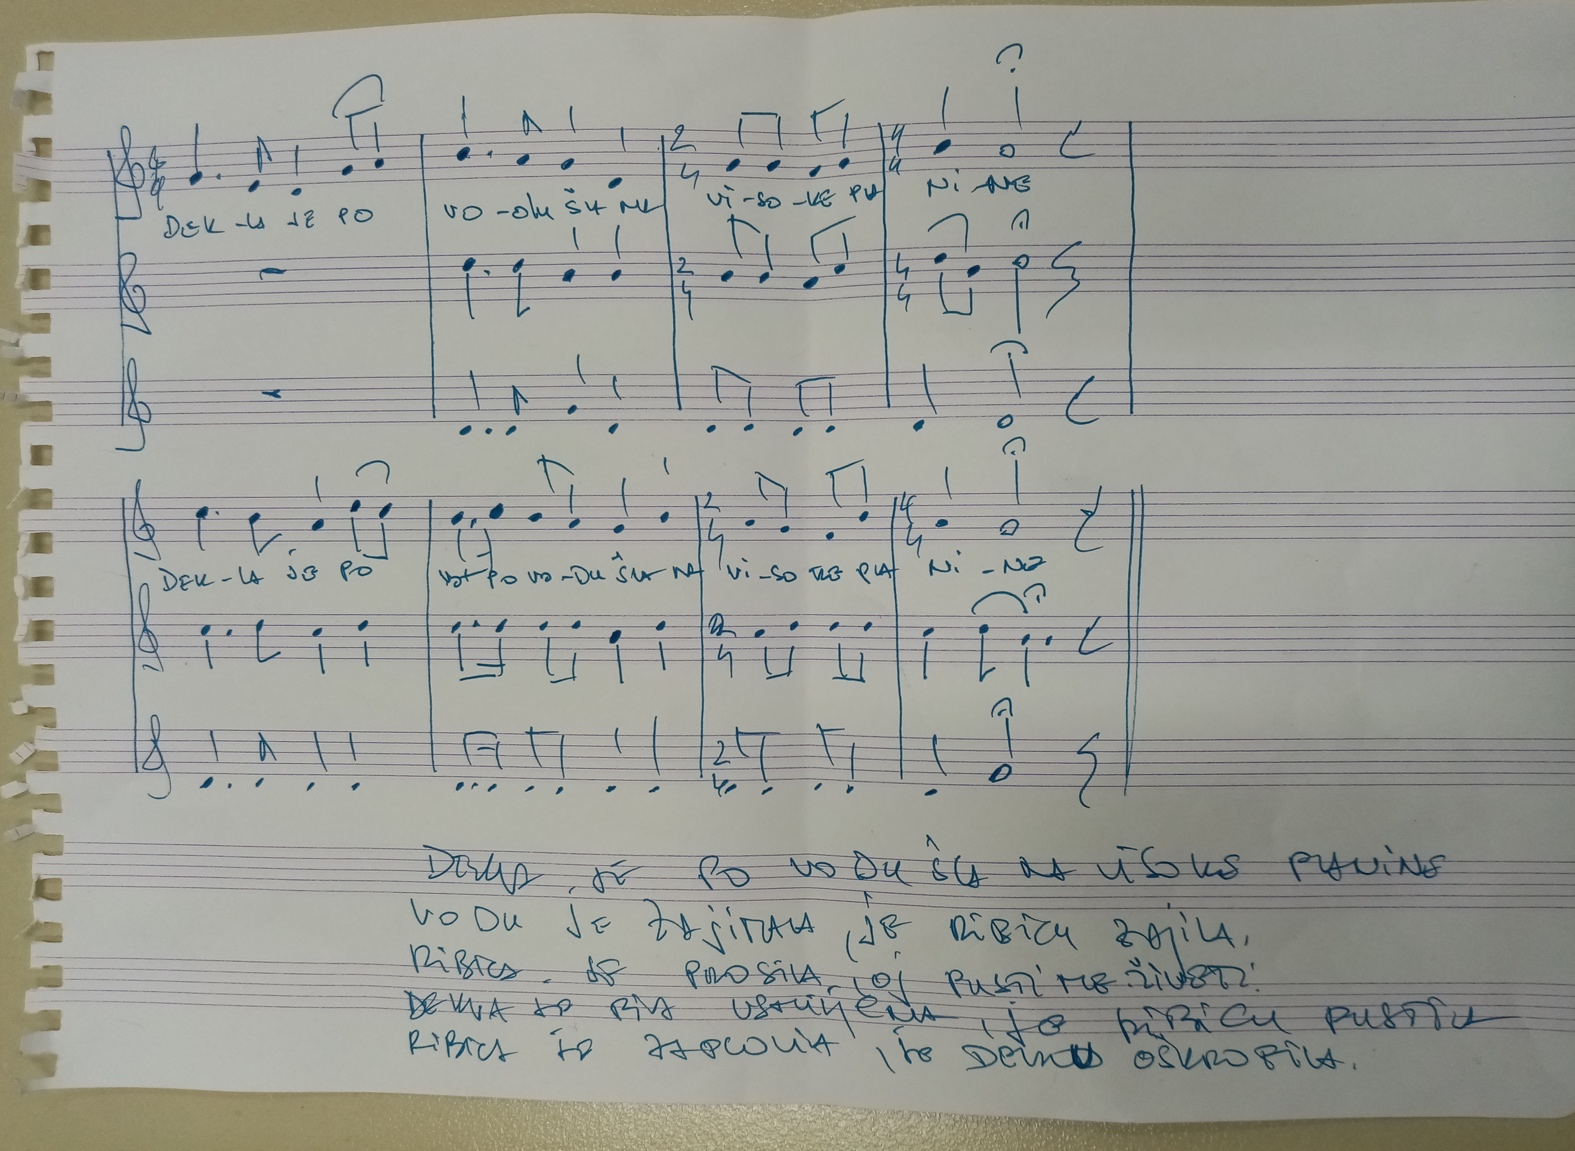 DEK-LA JE PO VO-DU ŠLA NA Vi-SO-KE PLA Ni-NE
DEK-LA JE PO PO VO-DU ŠLA NA Vi-SO KE PLA Ni-NE
DEKLA JE PO VODU ŠLA NA VISOKE PLANINE
VODU JE ZAJIMALA, JE RIBICU ZAJILA,
RIBICA JE PROSILA, OJ PUSTI ME ŽIVETI.
DEKLA JE BILA USMILJENA, JE RIBICU PUSTILA
RIBICA JE ZAPLOVILA, JE DEKLU OŠKROPILA.